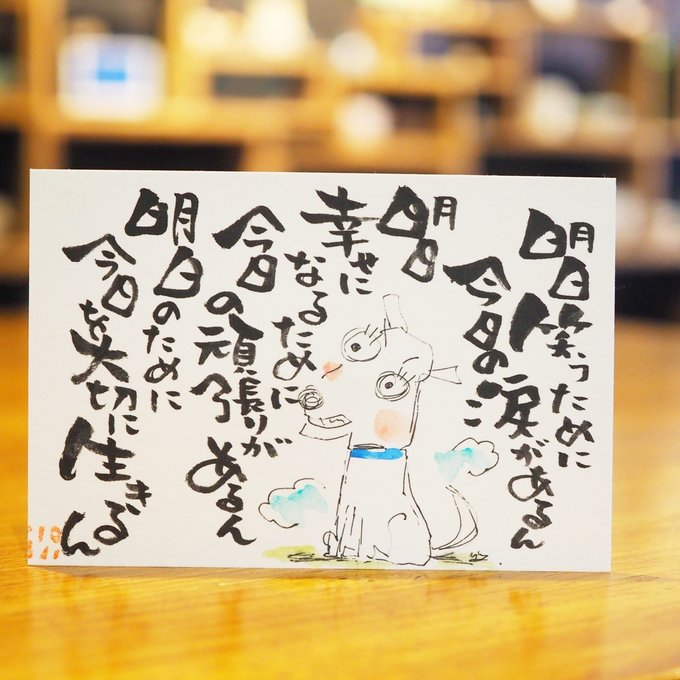 明日笑うために
今日の涙があるん
明日
幸せに
なるために
今日の頑張りが
あるん
明日のために
今日を大切に生きるん